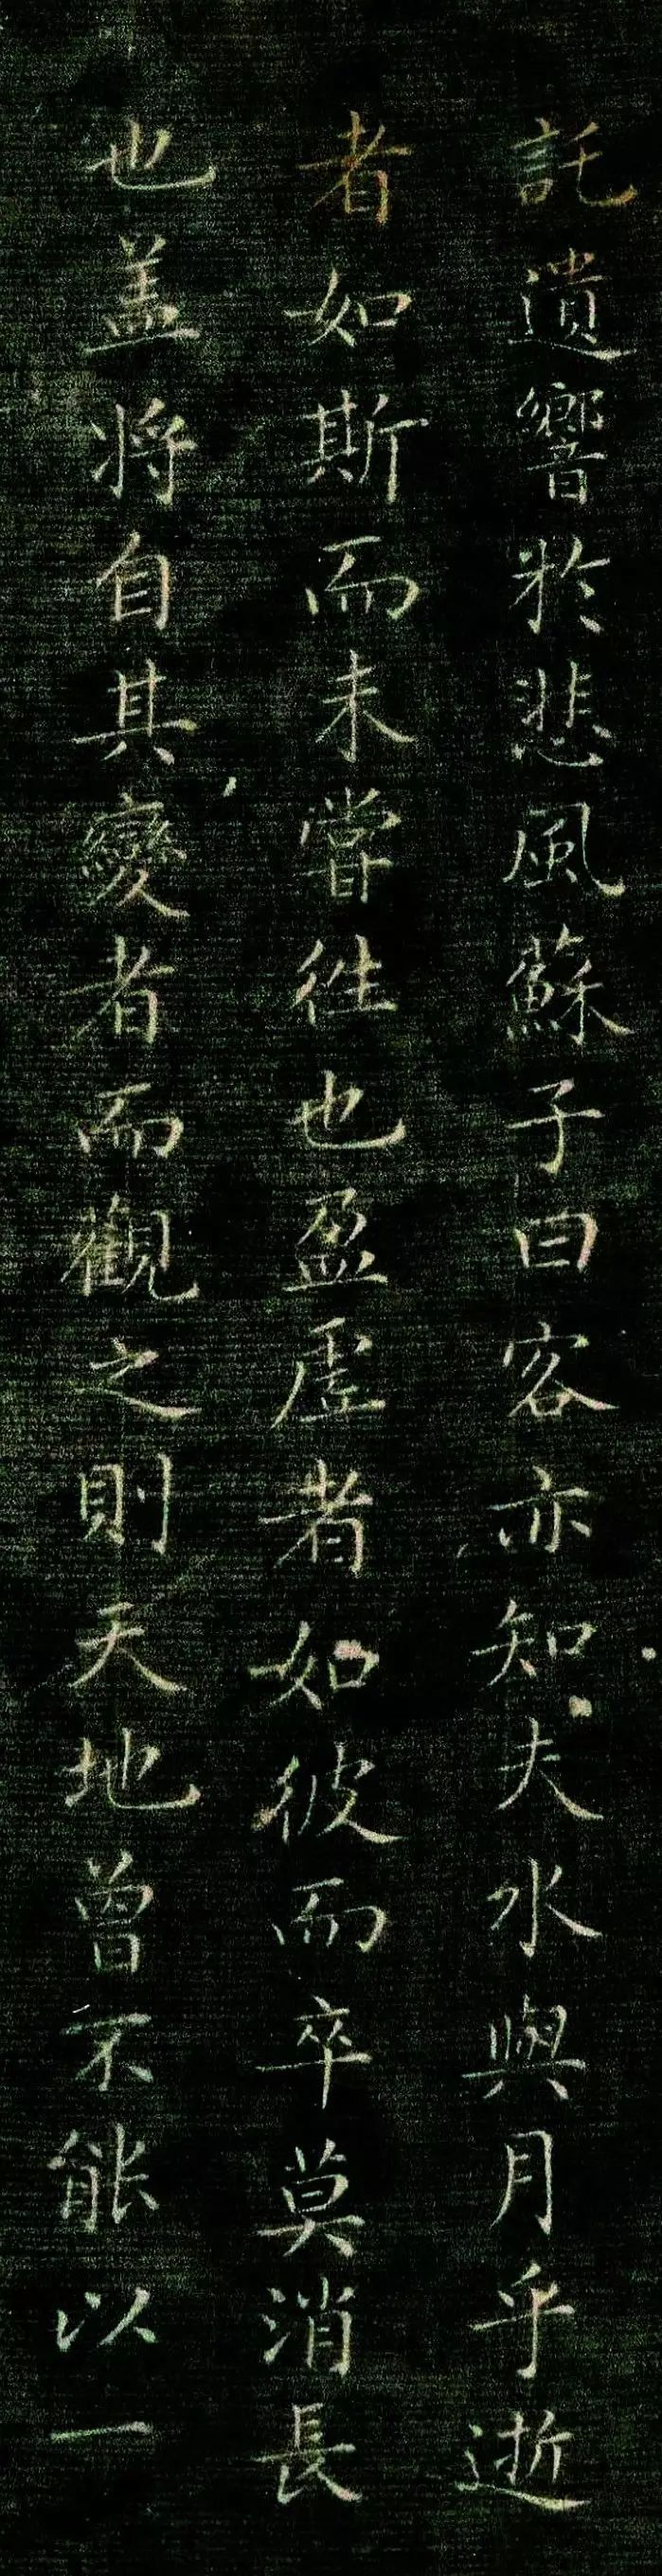 託遺響於悲風蘇子曰客亦知夫水與月乎逝
者如斯而未甞往也盈虛者如彼而卒莫消長
也盖將自其變者而觀之則天地曾不能以一